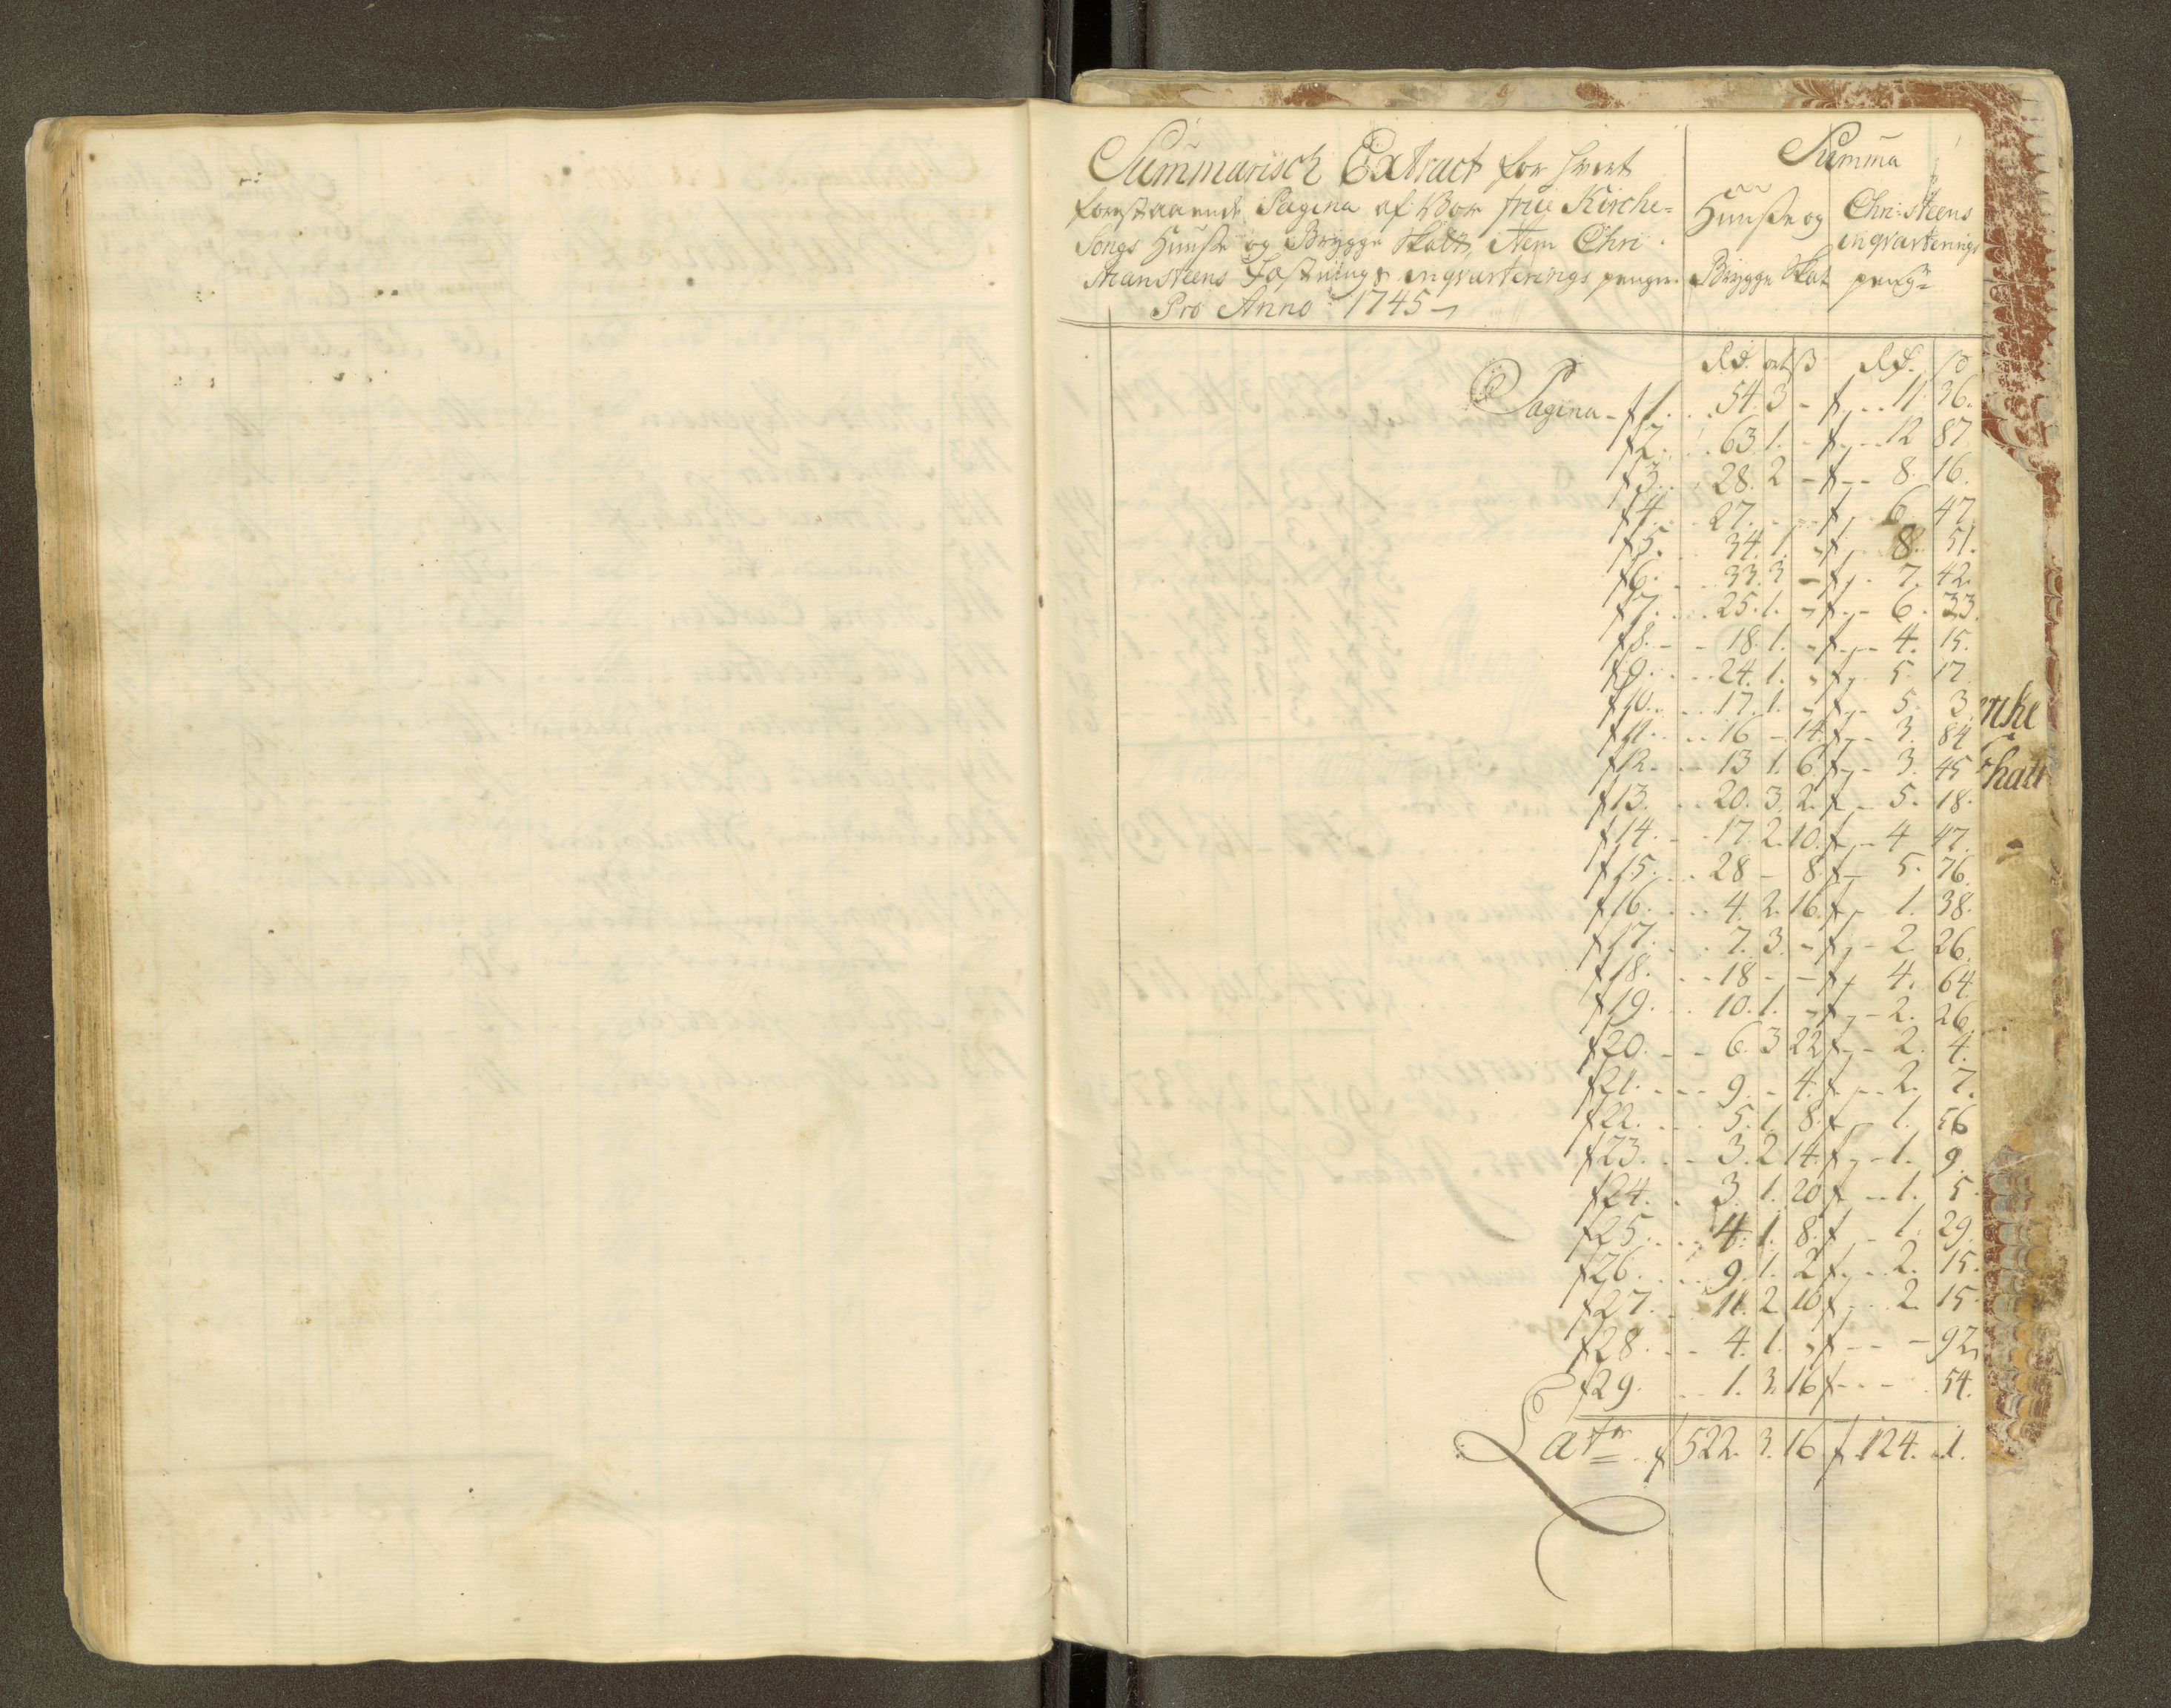 Summarisch Extract for hvert
forestaaende Pagina af Vor frue Kirche=
Songs Huuse og Brygge Skatt, Item Chri
stiansteens Fæstnings inqvarterings penger
Pro Anno 1745
Summa
Huuse og
Brygge Skat
Chri:steens
inqvarterings
peng=
Rd. ort ß Rd. ß
Pagina - f 1. 54. 3 - f 11. 36.
f 2. 63 1. - f 12 87
f 3. 28. 2 - f 8. 16.
f 4. 27. - - f 6. 47
f 5. 34. 1. - f 8. 51.
f 6. 33. 3 - f 7. 42.
f 7. 25. 1. - f 6. 33.
f 8. 18. 1. - f 4. 15.
f 9. 24. 1. - f 5. 17
f 10. 17. 1. - f 5. 3
f 11. 16 - 14. f 3. 84
f 12. 13 1. 6. f 3. 45
f 13. 20. 3. 2. f 5. 18.
f 14. 17 2. 10. f 4 47.
f 15. 28 - 8. f 5. 76.
f 16. 4. 2. 16. f 1. 38.
f 17. 7. 3. - f 2 26.
f 18. 18 - - f 4. 64.
f 19. 10. 1. - f 2. 26
f 20. 6. 3 22 f 2. 4.
f 21. 9. - 4. f 2. 7.
f 22. 5. 1. 8. f 1. 56
f 23. 3. 2 14. f 1. 9.
f 24. 3. 1. 20 f 1. 5.
f 25. 4. 1. 8. f 1. 29.
f 26. 9. 1. 2 f 2. 15.
f 27. 11. 2. 10 f 2. 15.
f 28. 4. 1. - f - 92
f 29. 1. 3. 16 f - 54.
Latr f 522. 3. 16. f 124. 1.